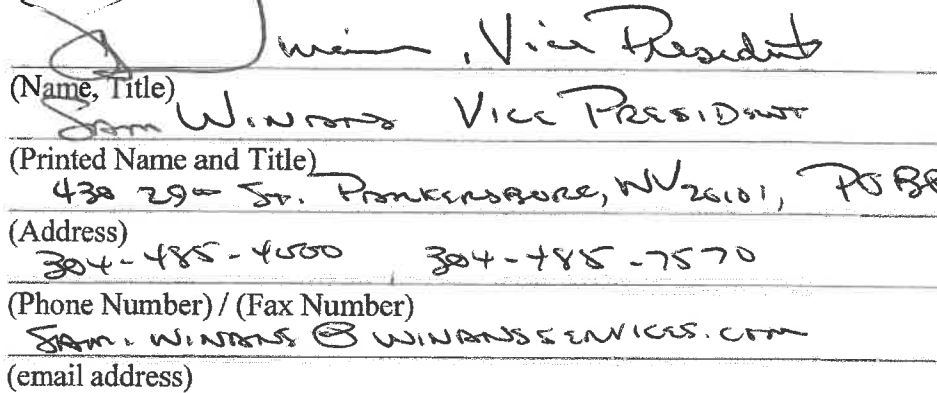 , Vice President
(Name, Title)
Sam WINANS VICE PRESIDENT
(Printed Name and Title)
430 29th ST. PARKERSBURG, WV 26101, PO BO
(Address)
304-485-4000 304-485-7570
(Phone Number) / (Fax Number)
SAM.WINANS@WINANSSERVICES.COM
(email address)